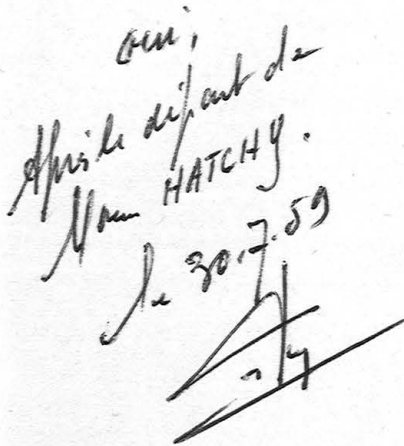 oui,
Après le départ de
Mour HATCHY.
le 30.7.59